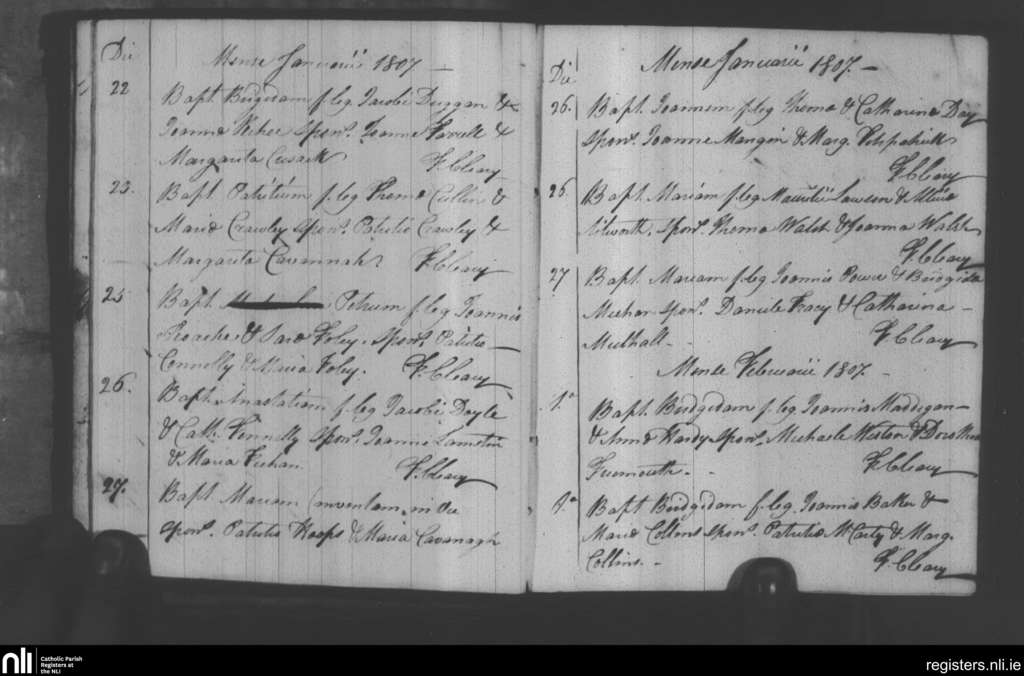 Die
Mense Januarii 1807 —
22 Bapt. Brigidam f. leg. Jacobi Duggan &
Joanna Sponr. Joanne Farrell &
Margarita Cusack F. Cleary
23. Bapt. Patritium f. leg. Thoma Cullin &
Maria Crawley Sponr. Patritio Crawley &
Margarita Cavannah F. Cleary
25 Bapt. Petrum f. leg. Joannis
Roache & Sara Foley. Sponr. Patritio
Connelly & Maria Foley. F. Cleary
26. Bapt. Anastatiam f. leg. Jacobi Doyle
& Cath. Fennelly Sponr. Joanne
& Maria F. Cleary
27. Bapt. Mariam inventam in die
Sponr. Patritio & Maria Cavanagh
Die
Mense Januarii 1807. —
26. Bapt. Joannem f. leg. Thoma & Catharina Day
Sponr. Joanne Mangin & Marg. Fitzpatrick
F. Cleary
26 Bapt. Mariam f. leg. Mauritii Lawson &
Sponr. Thoma Walsh & Joanna Walsh
F. Cleary
27 Bapt. Mariam f. leg. Joannis Power & Brigida
Meehan Sponr. Daniele Tracy & Catharina —
Mulhall - - F. Cleary
Mense Februarii 1807. —
1.o Bapt. Bridgidam f. leg. Joannis Maddigan —
& Anna Hardy Sponr. Michaele Weston & Dorothea
F. Cleary
1.o Bapt. Bridgidam f. leg. Joannis Baker &
Maria Collins Sponr. Patritio McCarty & Marg.
Collins. — F. Cleary
nli Catholic Parish
Registers at
the NLI
registers.nli.ie